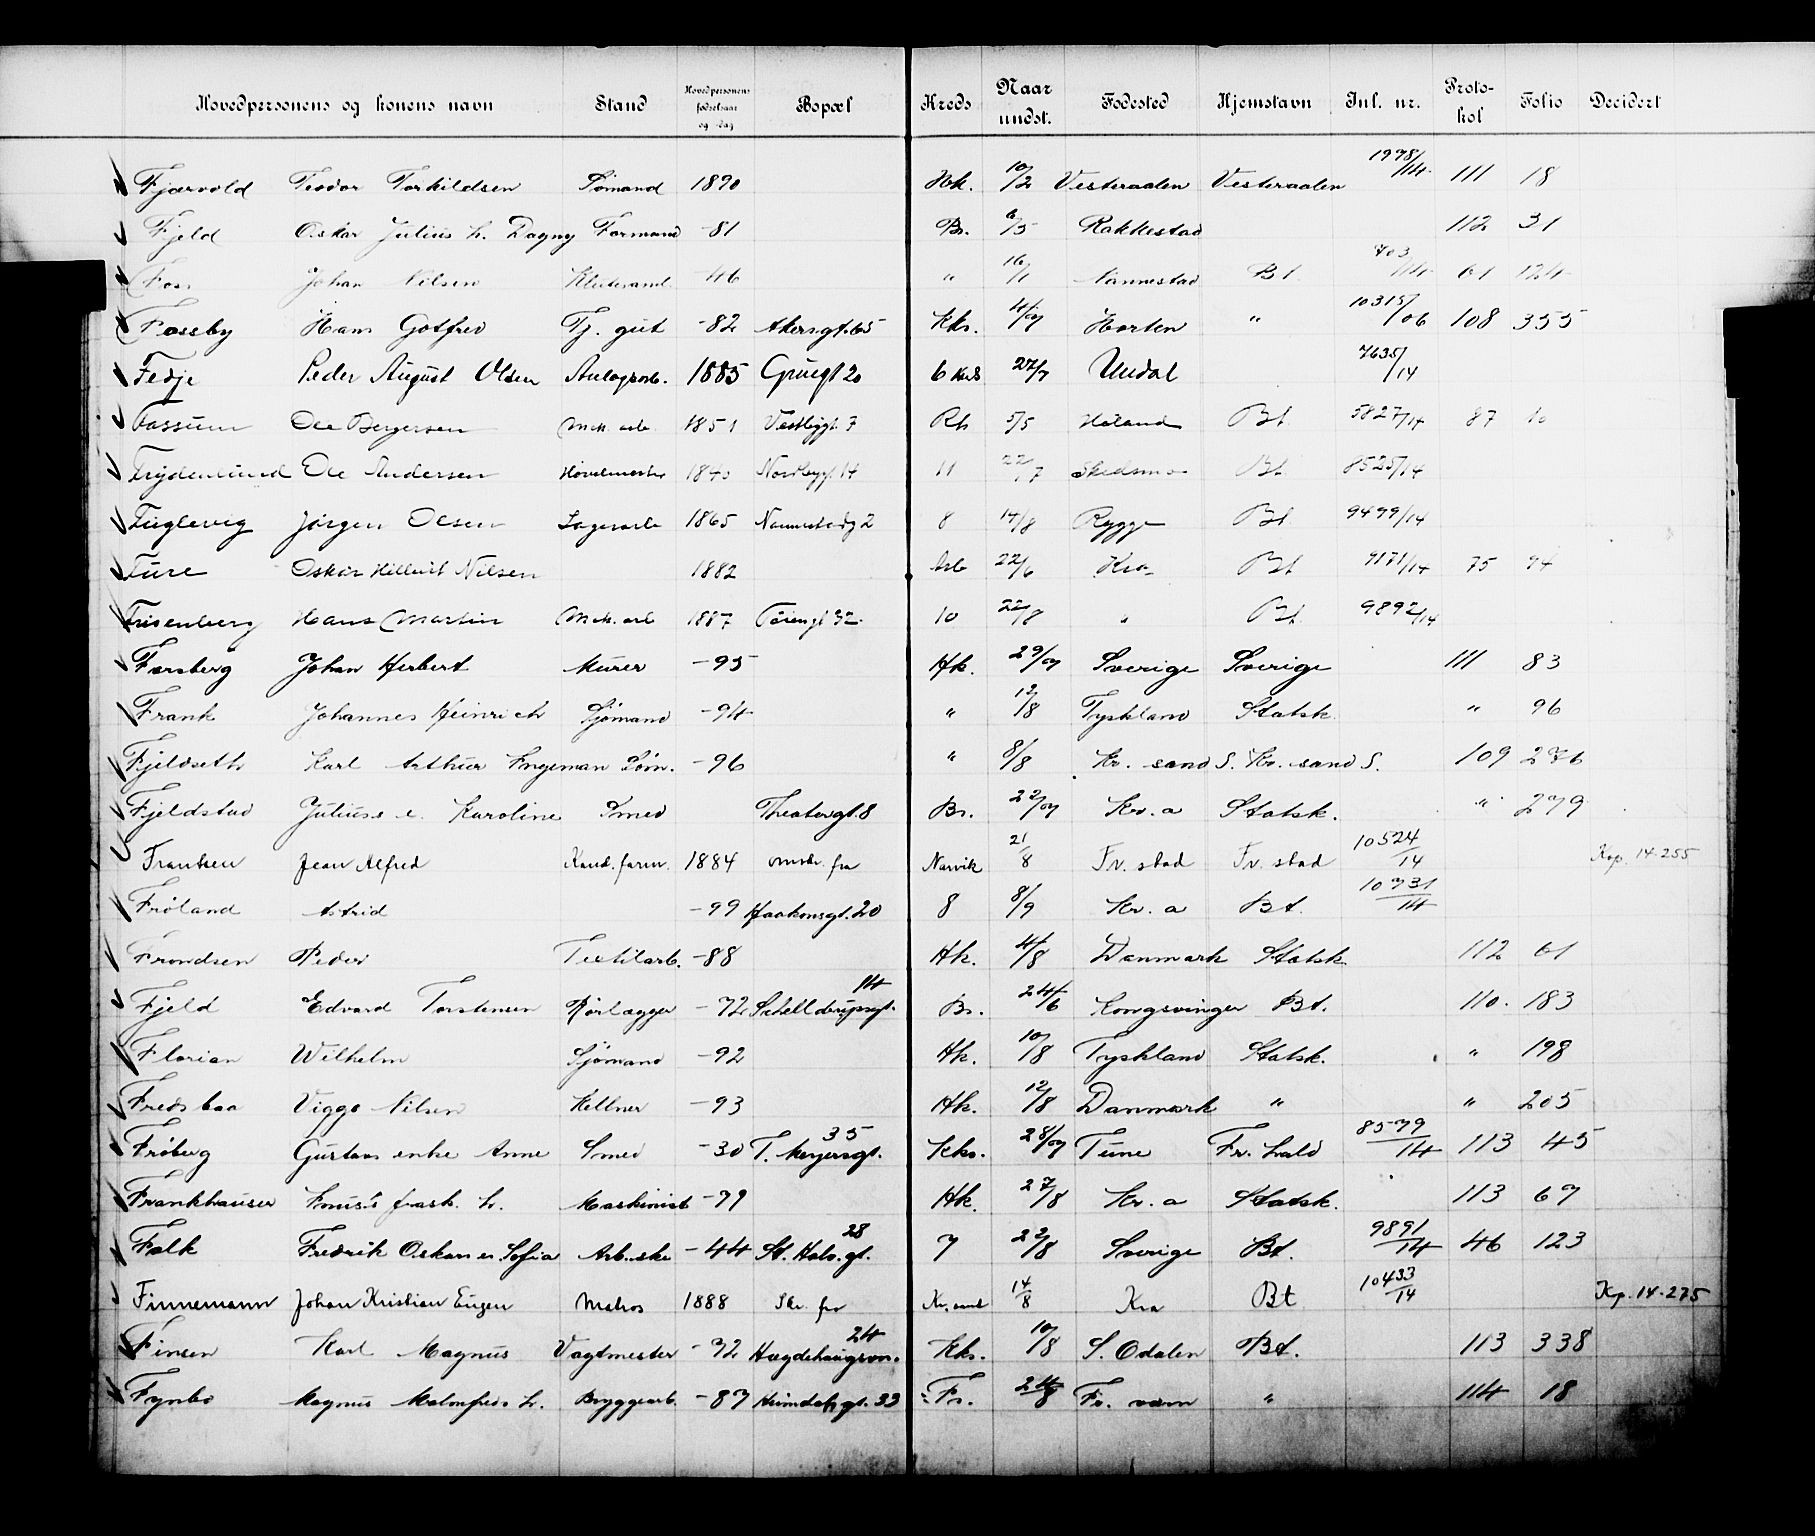 Hovedpersonens og konens navn Stand Hovedpersonens fødselsaar og -dag Bopæl Kreds Naar undst. Fødested Hjemstavn Inl. nr. Protokol Folio Decidert
Fjærvold Teodor Torkildsen Sømand 1890 Hk. 10/2 Vesteraalen Vesteraalen 1978/14 111 18
Fjeld Oskar Julius h. Dagny Formand -81 Br. 6/5 Rakkestad 112 31
Foss Johan Nilsen -46 " 16/1 Nannestad Bt. 703/14 61 124
Fossby Hans Gotfred Tj. gut -82 Akersgt. 65 Kks. 4/7 Horten " 10315/06 108 355
Fedje Peder August Olsen Anlagsarb. 1885 Gruegt 20 6 Kreds 27/7 Undal 7635/14
Fossum Ole Bergersen Mek. arb. 1851 Vestbygt. 7 Rh 5/5 Høland Bt. 5827/14 87 10
Frydenlund Ole Andersen Høvelmester 1840 Nordbygt. 14 11 22/7 Skedsmo Bt 8525/14
Fuglevig Jørgen Olsen Lagerarb 1865 Nannestadg 2 8 14/8 Rygge Bt. 9499/14
Fure Oskar Hilbert Nilsen 1882 Arb 22/6 Kra Bt 9171/14 75 94
Frisenberg Hans Martin Mek. arb 1887 Tøiengt 32 10 22/8 " Bt. 9892/14
Forsberg Johan Herbert Murer -95 Hk. 29/7 Sverige Sverige 111 83
Frank Johannes Heinrich Sjømand -94 " 12/8 Tyskland Statsk. " 96
Fjeldseth Karl Arthur Ingeman Søm. -96 " 8/8 Kr. sand S. Kr. sand S. 109 276
Fjeldstad Julius e. Karoline Smed Theatergt. 8 Br. 22/7 Kr. a Statsk. " 279
Frantsen Jean Alfred Kand. farm. 1884 omskr. fra Narvik 21/8 Fr. stad Fr. stad 10524/14 Kop. 14-255
Frøland Astrid -99 Haakonsgt. 20 8 8/9 Kr. a Bt. 10731/14
Frondsen Peder Textilarb. -88 Hk. 4/8 Danmark Statsk 112 61
Fjeld Edvard Torstensen Rørlægger -72 Schelderupsgt. 14 Br. 24/6 Kongsvinger Bt. 110. 183
Florian Wilhelm Sjømand -92 Hk. 10/8 Tyskland Statsk. " 198
Fredsbaa Viggo Nilsen Kellner -93 Hk. 12/8 Danmark " " 205
Frøberg Gustavs enke Anne Smed -30 T. Meyersgt. 35 Kks. 28/7 Tune Fr. hald 8579/14 113 45
Frankhauser frask. h. Maskinist -79 Hk. 27/8 Kr. a Statsk. 113 67
Falk Fredrik Oskar e. Sofia Arb. ske -44 St. Halv. gt. 28 7 22/8 Sverige Bt. 9891/14 46 123
Finnemann Johan Kristian Eugen Matros 1888 Skr. fra Kr. sand 14/8 Kra Bt 10433/14 Kp. 14-275
Finsen Karl Magnus Vagtmester -72 Hægdehaugsvn. 24 Kks. 10/8 S. Odalen Bt. 113 338
Fynbo Magnus Malmfreds h. Bryggearb. -87 Heimdalsgt. 33 Fr. 24/8 Fr. værn " 114 18